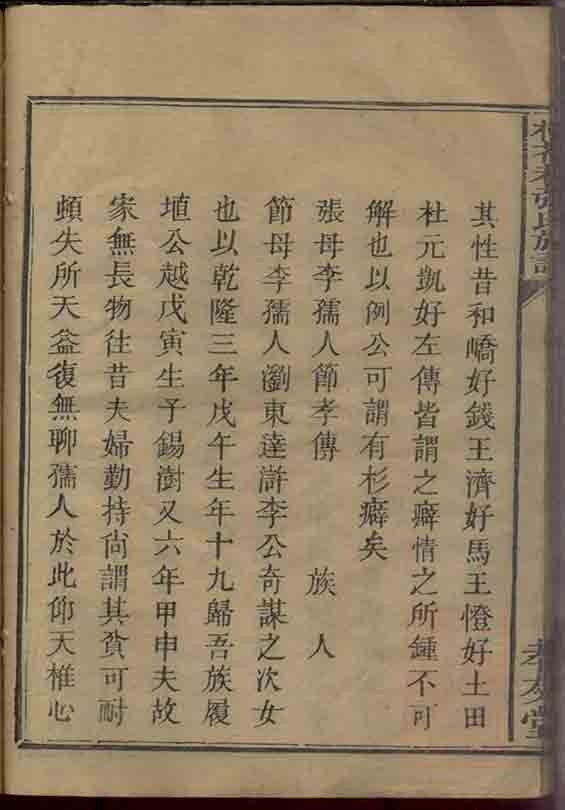 其性昔和嶠好錢王濟好馬王憕好土田
杜元凱好左傳皆謂之癖情之所鍾不可
解也以例公可謂有杉癖矣
張母李孺人節孝傳 族人
節母李孺人瀏東達滸李公奇謀之次女
也以乾隆三年戊午生年十九歸吾族履
埴公越戊寅生子錫澍又六年甲申夫故
家無長物往昔夫婦勤持尙謂其貧可耐
頓失所天益復無聊孺人於此仰天椎心
張氏族譜
孝友堂